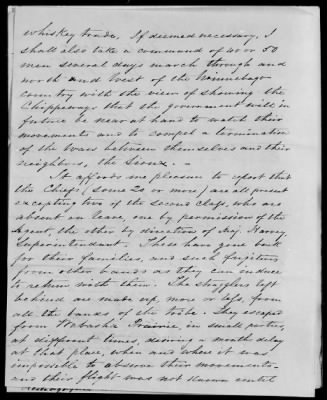 whiskey trade. If deemed necessary, I
shall also take a command of 40 or 50
men several days march through and
north and West of the Winnebago
country with the view of showing the
Chippeways that the government will in
future be near at hand to watch their
movements and to compel a termination
of the Wars between themselves and their
neighbors, the Sioux. –
It affords me pleasure to report that
the Chiefs (some 20 or more) are all present
excepting two of the second class, who are
absent on leave, one by permission of the
Agent, the other by direction of Maj. Harvey,
Superintendant. These have gone back
for their families, and such fugitives
from other bands as they can induce
to return with them. The stragglers left
behind are made up, more or less, from
all the bands of the tribe. They escaped
from Wabasha Prairie, in small parties,
at different times, during a month delay
at that place, when and where it was
impossible to observe their movements
and their flight was not known until